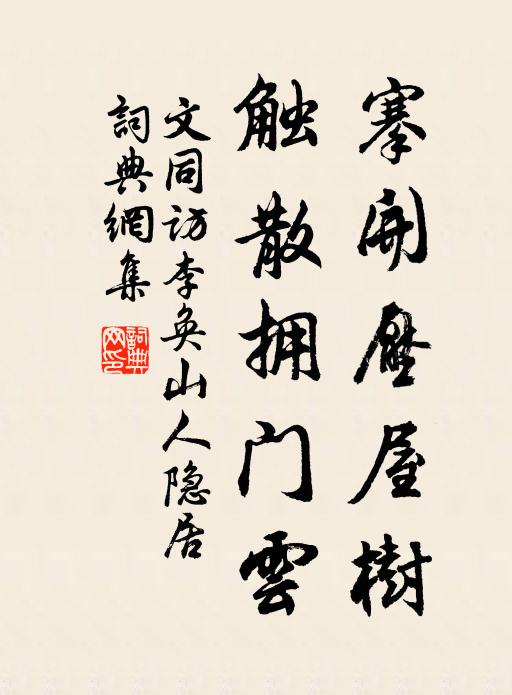 搴開壓屋樹
触散拥门雲
文同访李奂山人隐居
詞典網集
詞典
网印